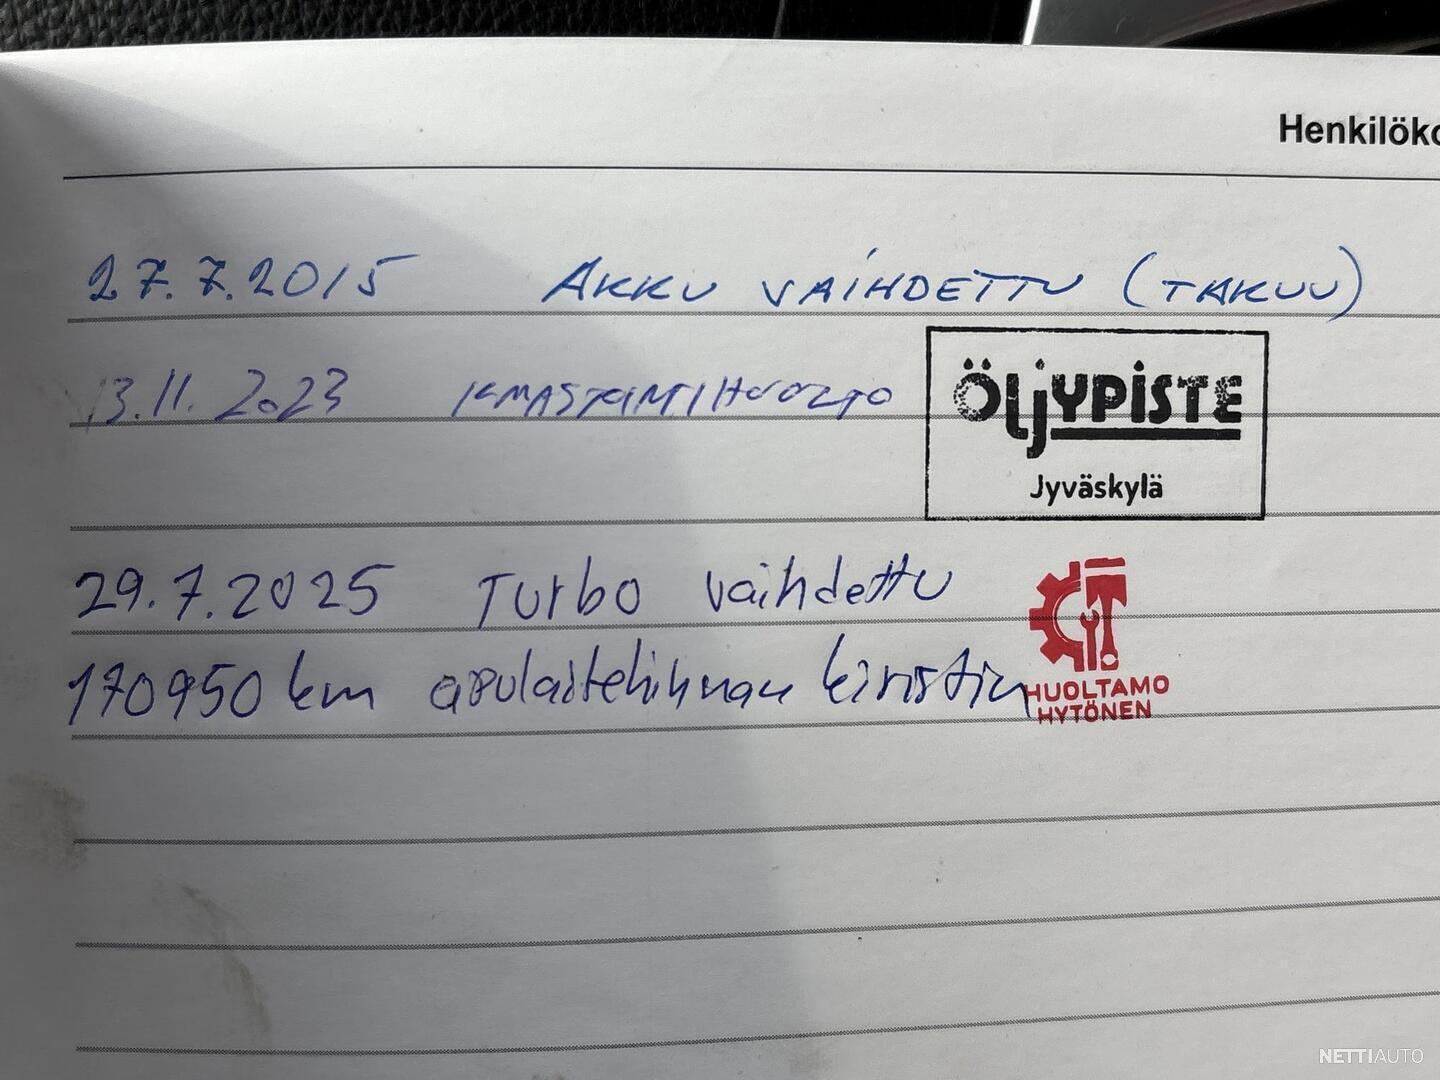 Henkilöko
27.7.2015 AKKU VAIHDETTU (TAKUU)
13.11.2023 ILMASTOINTIHUOLTO
ÖLJYPISTE
Jyväskylä
29.7.2025 Turbo vaihdettu
170950 km apulaitehihnan kiristin
HUOLTAMO
HYTÖNEN
NETTIAUTO